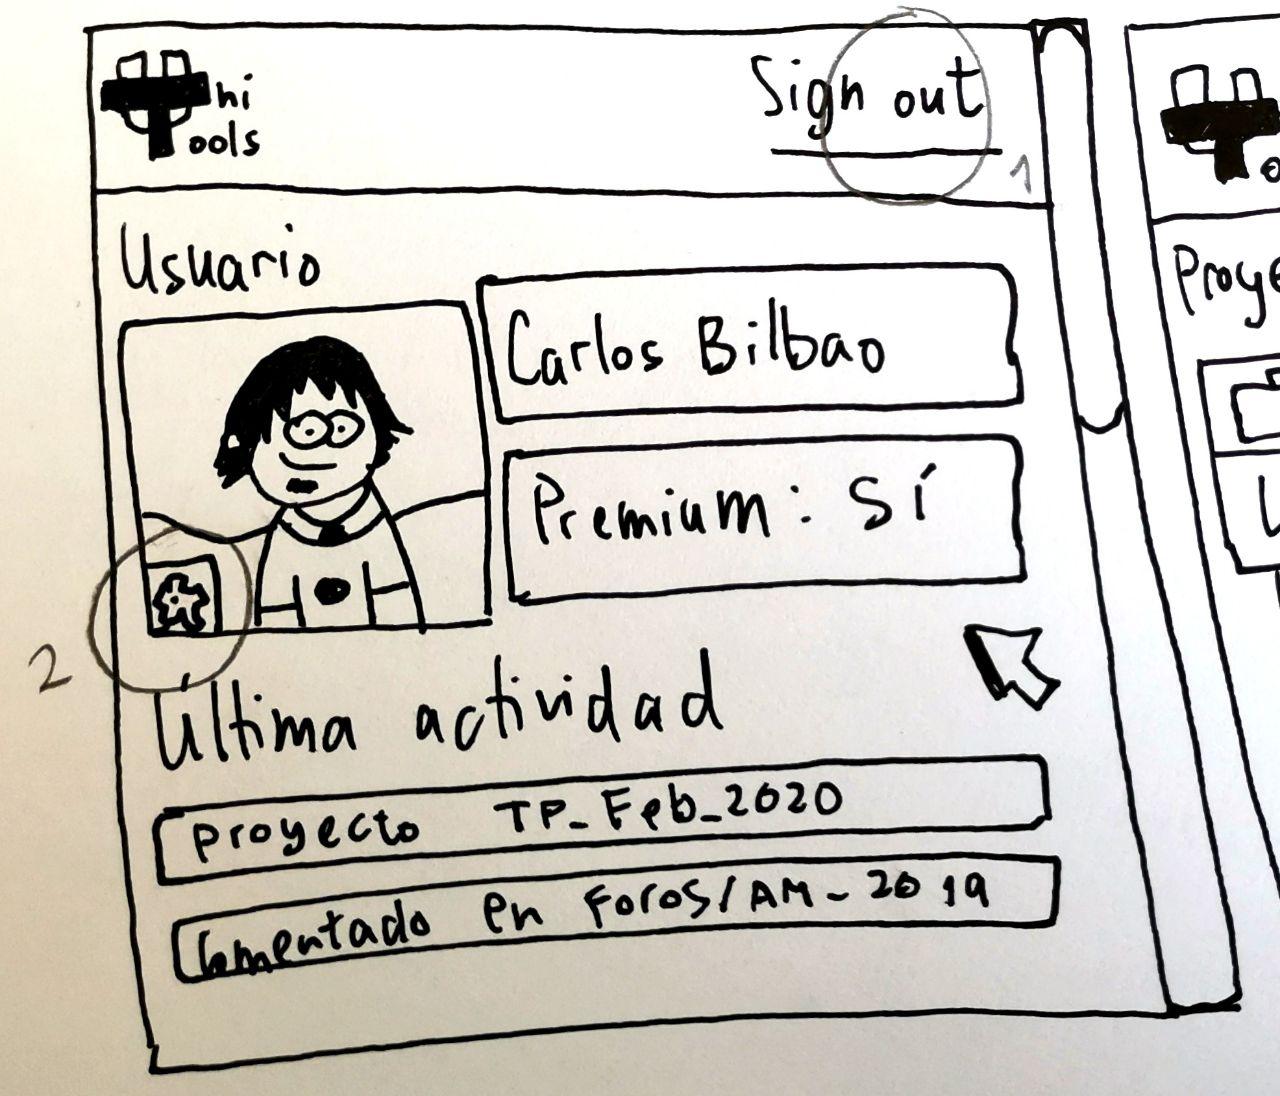 hi
ools
Sign out
1
Usuario
Carlos Bilbao
Premium: Sí
2
Última actividad
Proyecto TP_Feb_2020
Comentado en Foros/AM_2019
Proye